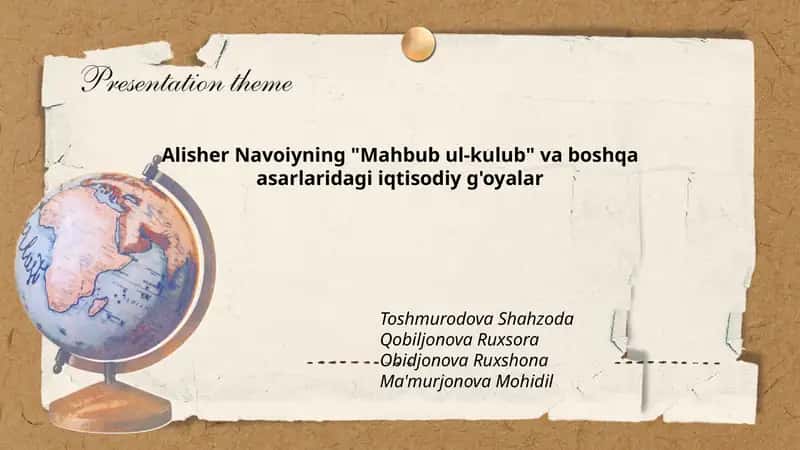 Presentation theme
Alisher Navoiyning "Mahbub ul-kulub" va boshqa
asarlaridagi iqtisodiy g'oyalar
Toshmurodova Shahzoda
Qobiljonova Ruxsora
Obidjonova Ruxshona
Ma'murjonova Mohidil